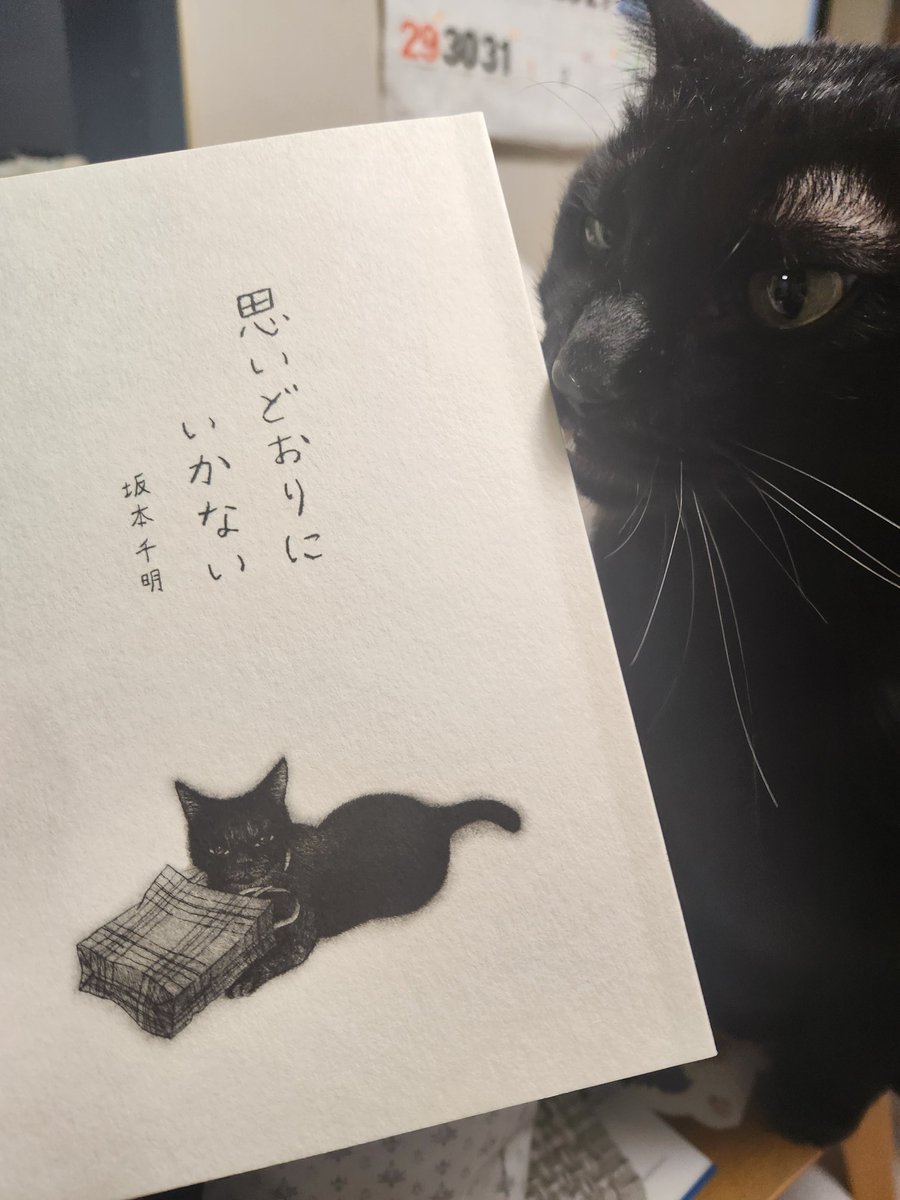 思いどおりに
いかない
坂本千明
29 30 31